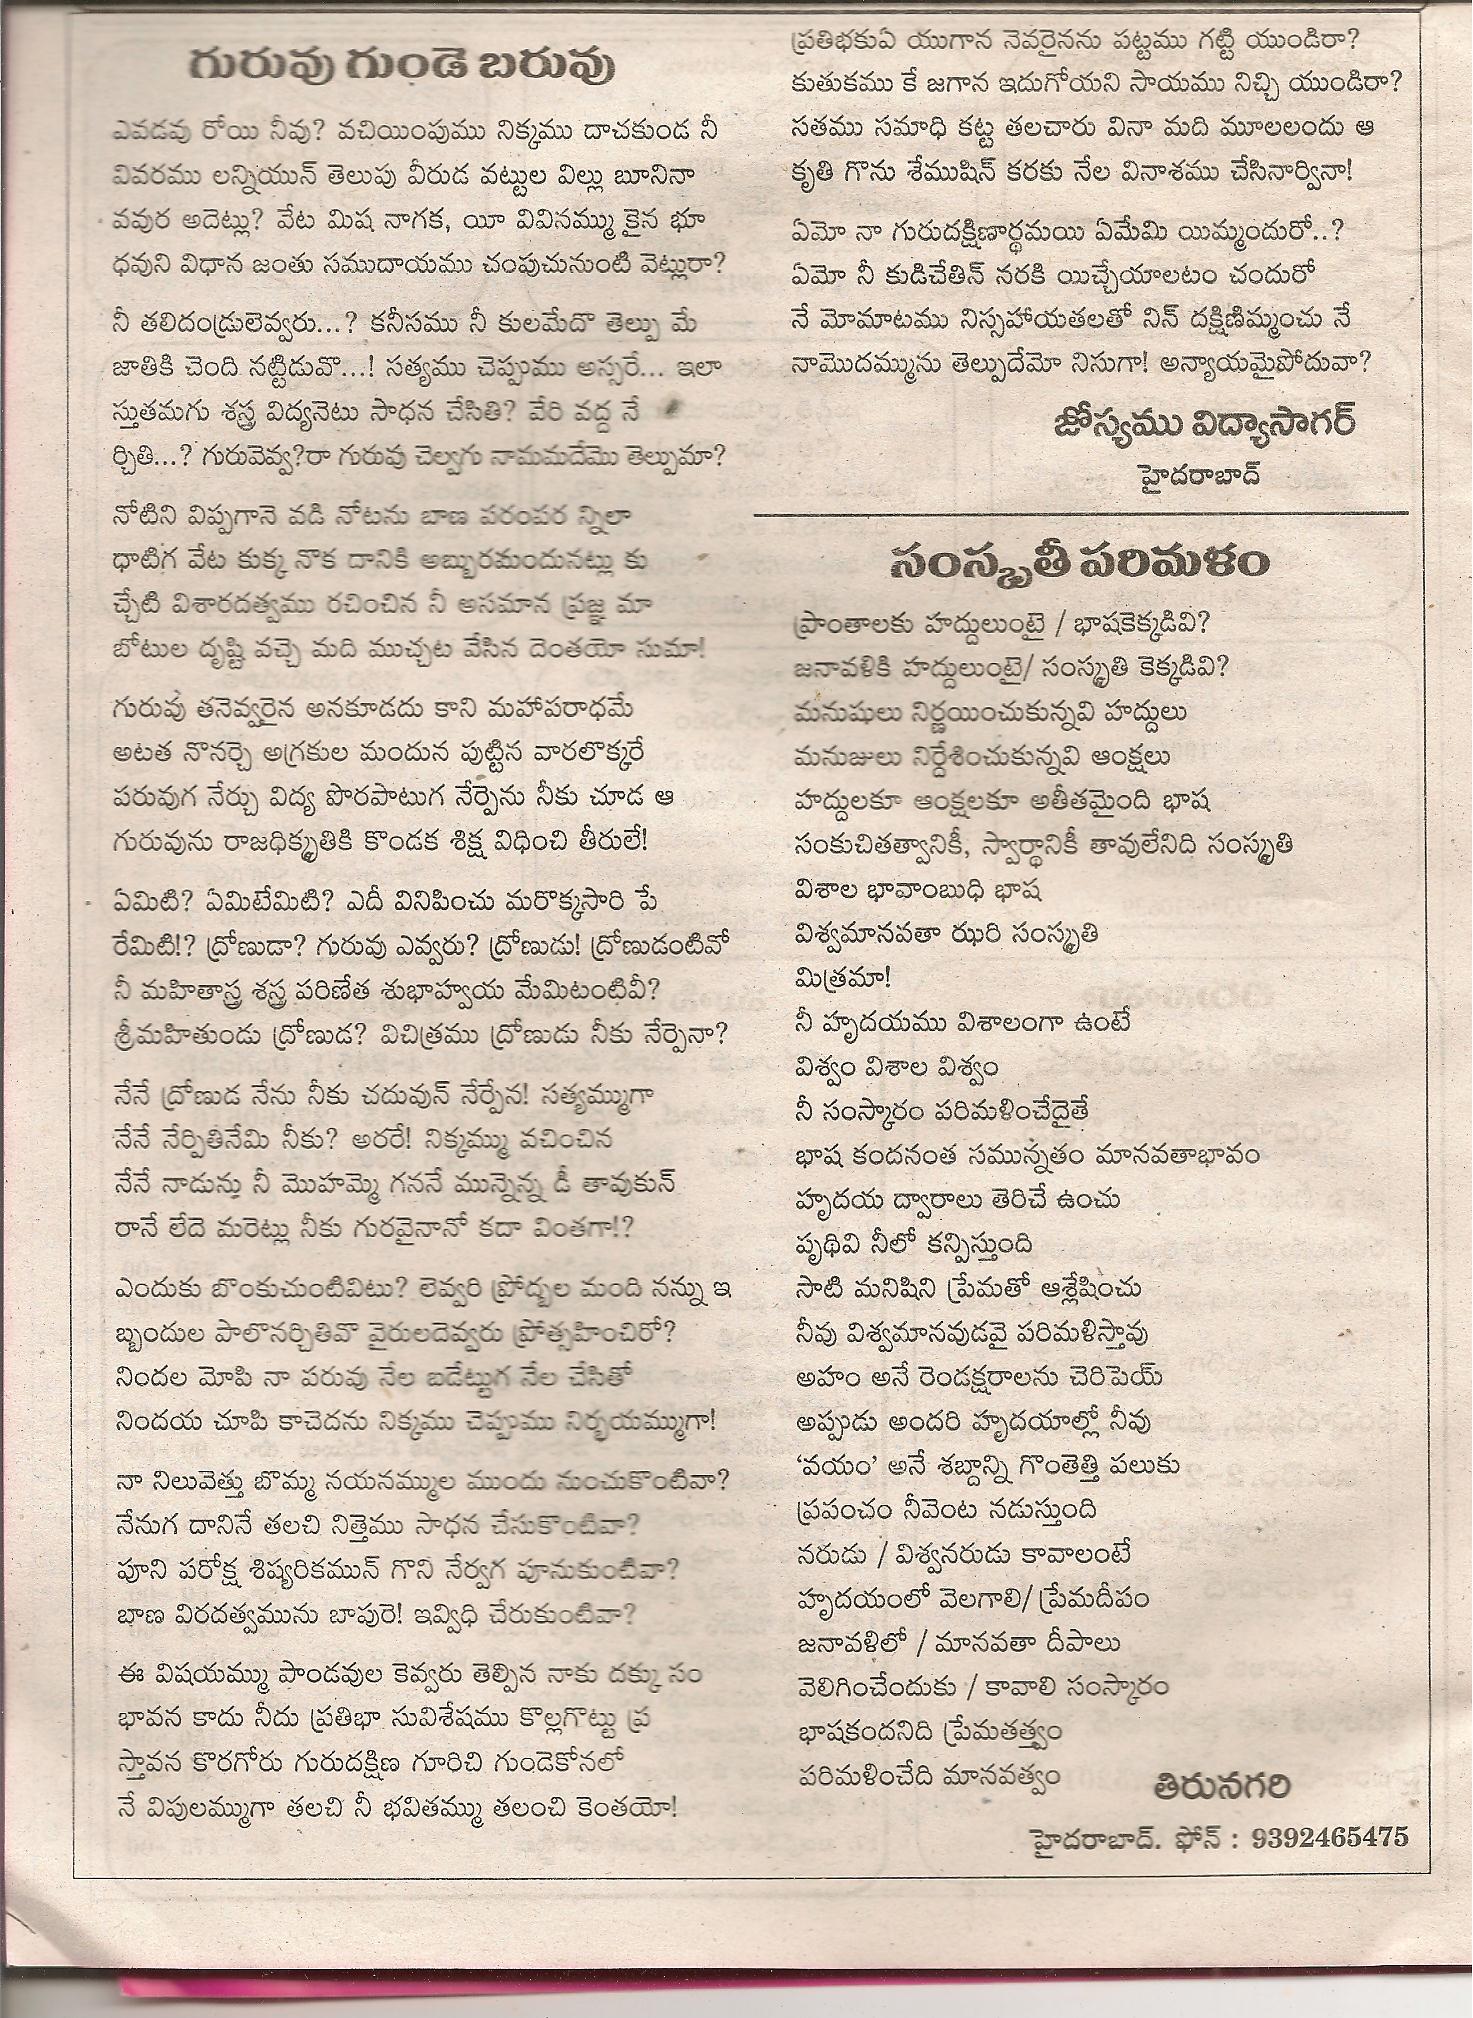 గురువు గుండె బరువు
ఎవడవు రోయి నీవు? వచియింపుము నిక్కము దాచకుండ నీ
వివరము లన్నియున్ తెలుపు వీరుడ వట్టుల విల్లు బూనినా
వవుర అదెట్లు? వేట మిష నాగక, యీ వివినమ్ము కైన భూ
ధవుని విధాన జంతు సముదాయము చంపుచునుంటి వెట్లురా?
నీ తలిదండ్రులెవ్వరు...? కనీసము నీ కులమేదొ తెల్పు మే
జాతికి చెంది నట్టిడువొ...! సత్యము చెప్పుము అస్సరే... ఇలా
స్తుతమగు శస్త్ర విద్యనెటు సాధన చేసితి? వేరి వద్ద నే
ర్చితి...? గురువెవ్వ?రా గురువు చెల్వగు నామమదేమొ తెల్పుమా?
నోటిని విప్పగానె వడి నోటను బాణ పరంపర న్నిలా
ధాటిగ వేట కుక్క నొక దానికి అబ్బురమందునట్లు కు
చ్చేటి విశారదత్వము రచించిన నీ అసమాన ప్రజ్ఞ మా
బోటుల దృష్టి వచ్చె మది ముచ్చట వేసిన దెంతయో సుమా!
గురువు తనెవ్వరైన అనకూడదు కాని మహాపరాధమే
అటత నొనర్చె అగ్రకుల మందున పుట్టిన వారలొక్కరే
పరువుగ నేర్చు విద్య పొరపాటుగ నేర్పెను నీకు చూడ ఆ
గురువును రాజధిక్కృతికి కొండక శిక్ష విధించి తీరులే!
ఏమిటి? ఏమిటేమిటి? ఎదీ వినిపించు మరొక్కసారి పే
రేమిటి!? ద్రోణుడా? గురువు ఎవ్వరు? ద్రోణుడు! ద్రోణుడంటివో
నీ మహితాస్త్ర శస్త్ర పరిణేత శుభాహ్వయ మేమిటంటివీ?
శ్రీమహితుండు ద్రోణుడ? విచిత్రము ద్రోణుడు నీకు నేర్పెనా?
నేనే ద్రోణుడ నేను నీకు చదువున్ నేర్పేన! సత్యమ్ముగా
నేనే నేర్పితినేమి నీకు? అరరే! నిక్కమ్ము వచించిన
నేనే నాడును నీ మొహమ్మె గననే మున్నెన్న డీ తావుకున్
రానే లేదె మరెట్లు నీకు గురవైనానో కదా వింతగా!?
ఎందుకు బొంకుచుంటివిటు? లెవ్వరి ప్రోద్బల మంది నన్ను ఇ
బ్బందుల పాలొనర్చితివొ వైరులదెవ్వరు ప్రోత్సహించిరో?
నిందల మోపి నా పరువు నేల బడేట్టుగ నేల చేసితో
నిందయ చూపి కాచెదను నిక్కము చెప్పుము నిర్భయమ్ముగా!
నా నిలువెత్తు బొమ్మ నయనమ్ముల ముందు నుంచుకొంటివా?
నేనుగ దానినే తలచి నిత్తెము సాధన చేసుకొంటివా?
పూని పరోక్ష శిష్యరికమున్ గొని నేర్వగ పూనుకుంటివా?
బాణ విరదత్వమును బాపురె! ఇవ్విధి చేరుకుంటివా?
ఈ విషయమ్ము పాండవుల కెవ్వరు తెల్పిన నాకు దక్కు సం
భావన కాదు నీదు ప్రతిభా సువిశేషము కొల్లగొట్టు ప్ర
స్తావన కొరగోరు గురుదక్షిణ గూరిచి గుండెకోనలో
నే విపులమ్ముగా తలచి నీ భవితమ్ము తలంచి కెంతయో!
ప్రతిభకుఏ యుగాన నెవరైనను పట్టము గట్టి యుండిరా?
కుతుకము కే జగాన ఇదుగోయని సాయము నిచ్చి యుండిరా?
సతము సమాధి కట్ట తలచారు వినా మది మూలలందు ఆ
కృతి గొను శేముషిన్ కరకు నేల వినాశము చేసినార్వినా!
ఏమో నా గురుదక్షిణార్థమయి ఏమేమి యిమ్మందురో..?
ఏమో నీ కుడిచేతిన్ నరకి యిచ్చేయాలటం చందురో
నే మోమాటము నిస్సహాయతలతో నిన్ దక్షిణిమ్మంచు నే
నామొదమ్మును తెల్పుదేమో నిసుగా! అన్యాయమైపోదువా?
జోస్యము విద్యాసాగర్
హైదరాబాద్
సంస్కృతీ పరిమళం
ప్రాంతాలకు హద్దులుంటై / భాషకెక్కడివి?
జనావళికి హద్దులుంటై/ సంస్కృతి కెక్కడివి?
మనుషులు నిర్ణయించుకున్నవి హద్దులు
మనుజులు నిర్దేశించుకున్నవి ఆంక్షలు
హద్దులకూ ఆంక్షలకూ అతీతమైంది భాష
సంకుచితత్వానికీ, స్వార్థానికీ తావులేనిది సంస్కృతి
విశాల భావాంబుధి భాష
విశ్వమానవతా ఝరి సంస్కృతి
మిత్రమా!
నీ హృదయము విశాలంగా ఉంటే
విశ్వం విశాల విశ్వం
నీ సంస్కారం పరిమళించేదైతే
భాష కందనంత సమున్నతం మానవతాభావం
హృదయ ద్వారాలు తెరిచే ఉంచు
పృథివి నీలో కన్పిస్తుంది
సాటి మనిషిని ప్రేమతో ఆశ్లేషించు
నీవు విశ్వమానవుడవై పరిమళిస్తావు
అహం అనే రెండక్షరాలను చెరిపెయ్
అప్పుడు అందరి హృదయాల్లో నీవు
‘వయం’ అనే శబ్దాన్ని గొంతెత్తి పలుకు
ప్రపంచం నీవెంట నడుస్తుంది
నరుడు / విశ్వనరుడు కావాలంటే
హృదయంలో వెలగాలి/ ప్రేమదీపం
జనావళిలో / మానవతా దీపాలు
వెలిగించేందుకు / కావాలి సంస్కారం
భాషకందనిది ప్రేమతత్త్వం
పరిమళించేది మానవత్వం
తిరునగరి
హైదరాబాద్. ఫోన్ : 9392465475